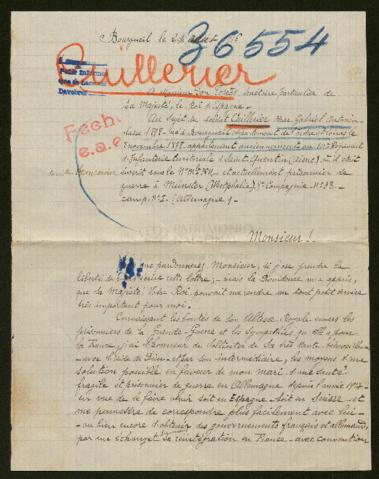 Bourgueil le 24
36554
Caillerier
A Monsieur Don Secrétaire Particulier de
Sa Majesté, le Roi d'Espagne -
Au sujet du soldat Caillerier Gabriel
classe 1898 - né à Bourgueil département de
novembre 1878, appartenant anciennement au 10e Régiment
d'Infanterie territoriale à Saint-Quentin (Aisne) où il était
inscrit sous le No et actuellement prisonnier de
guerre à Münster (Westphalie) Compagnie No 93 -
camp No I. (Allemagne) -
Fecho
e.a.e.
Monsieur !.
me pardonnerez Monsieur, si j'ose prendre la
liberté de cette lettre - mais la Providence m'a appris,
que Sa Majesté Votre Roi, pouvait me rendre un tout petit service
très important pour moi -
Connaissant les bontés de Son Altesse Royale envers les
prisonniers de la Grande-Guerre et les sympathies qu' pour
la France, j'ai l'honneur de solliciter de Sa très haute bienveillance
- avec l'aide de Dieu - et par son intermédiaire, les moyens d'une
solution possible en faveur de mon mari d'une santé
fragile et prisonnier de guerre en Allemagne depuis l'année
en vue de le faire soit en Espagne soit en Suisse - et
me permettre de correspondre plus facilement avec lui -
ou bien encore d'obtenir des gouvernements français et allemands,
par un échange sa réintégration en France - avec convention